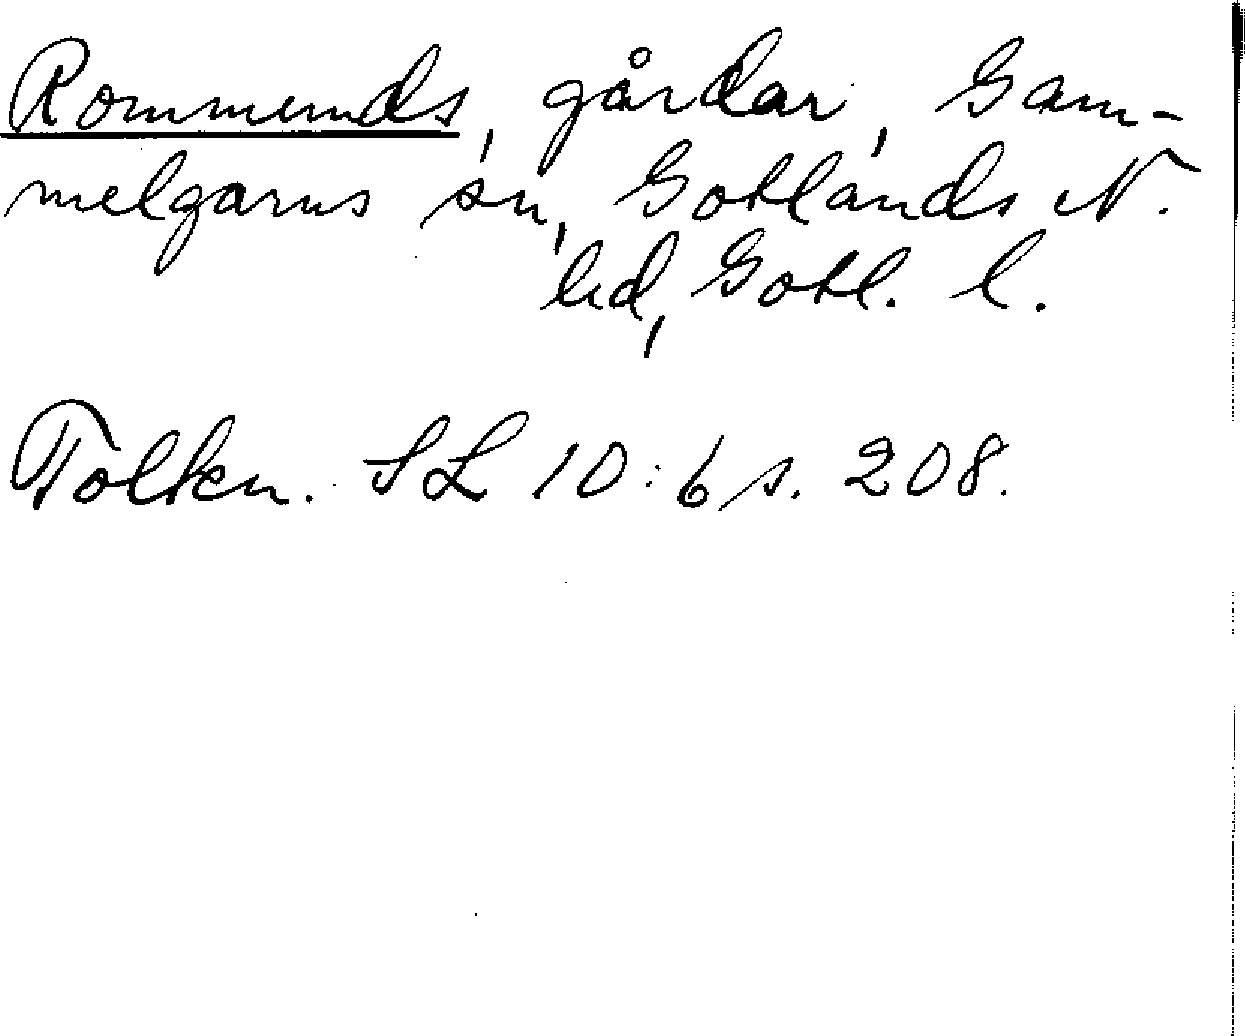 Rommunds, gårdar, Gam-
melgarns sn, Gotlands N.
hd, Gotl. l.
Tolkn. SL 10:6 s. 208.